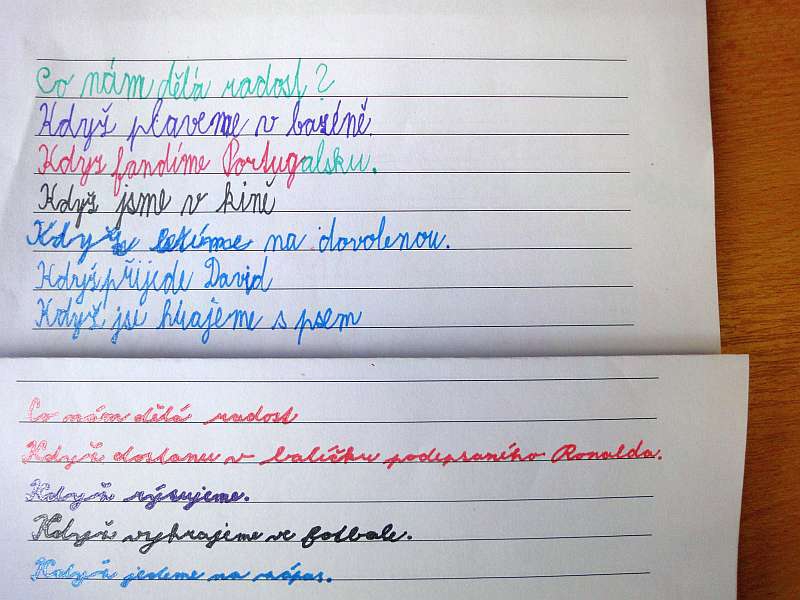 Co nám dělá radost?
Když plaveme v bazéně.
Kdyz fandíme Portugalsku.
Když jsme v kině
Když letíme na dovolenou.
Když přijede David
Když jse hrajeme s psem
Co nám dělá radost
Když dostanu v balíčku podepsaného Ronalda.
Když rýsujeme.
Když vyhrajeme ve fotbale.
Když jedeme na zápas.